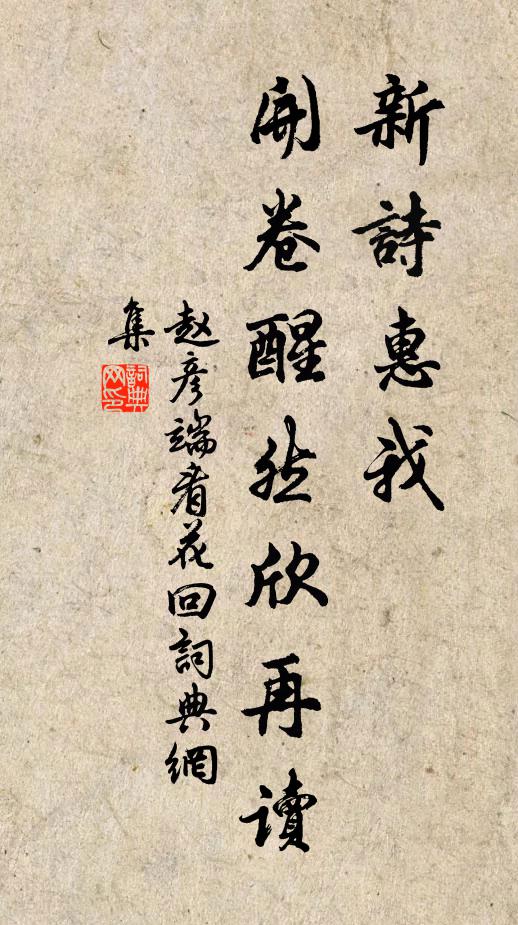 新詩惠我
開卷醒然欣再讀
赵彥端看花回詞典網
集
詞典
网印